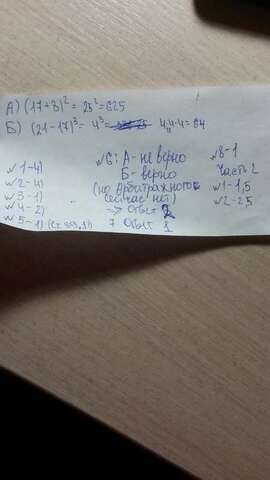 А) (17+8)² = 25² = 625
Б) (21-17)³ = 4³ = 4·4·4 = 64
№1-4)
№2-4)
№3-1)
№4-2)
№5-1)
№6: А- не верно
Б- верно
(но Арбитражного
сейчас нет)
-> Ответ 2
7 Ответ 1
№8-1
Часть 2
№1-1,5
№2-2,5